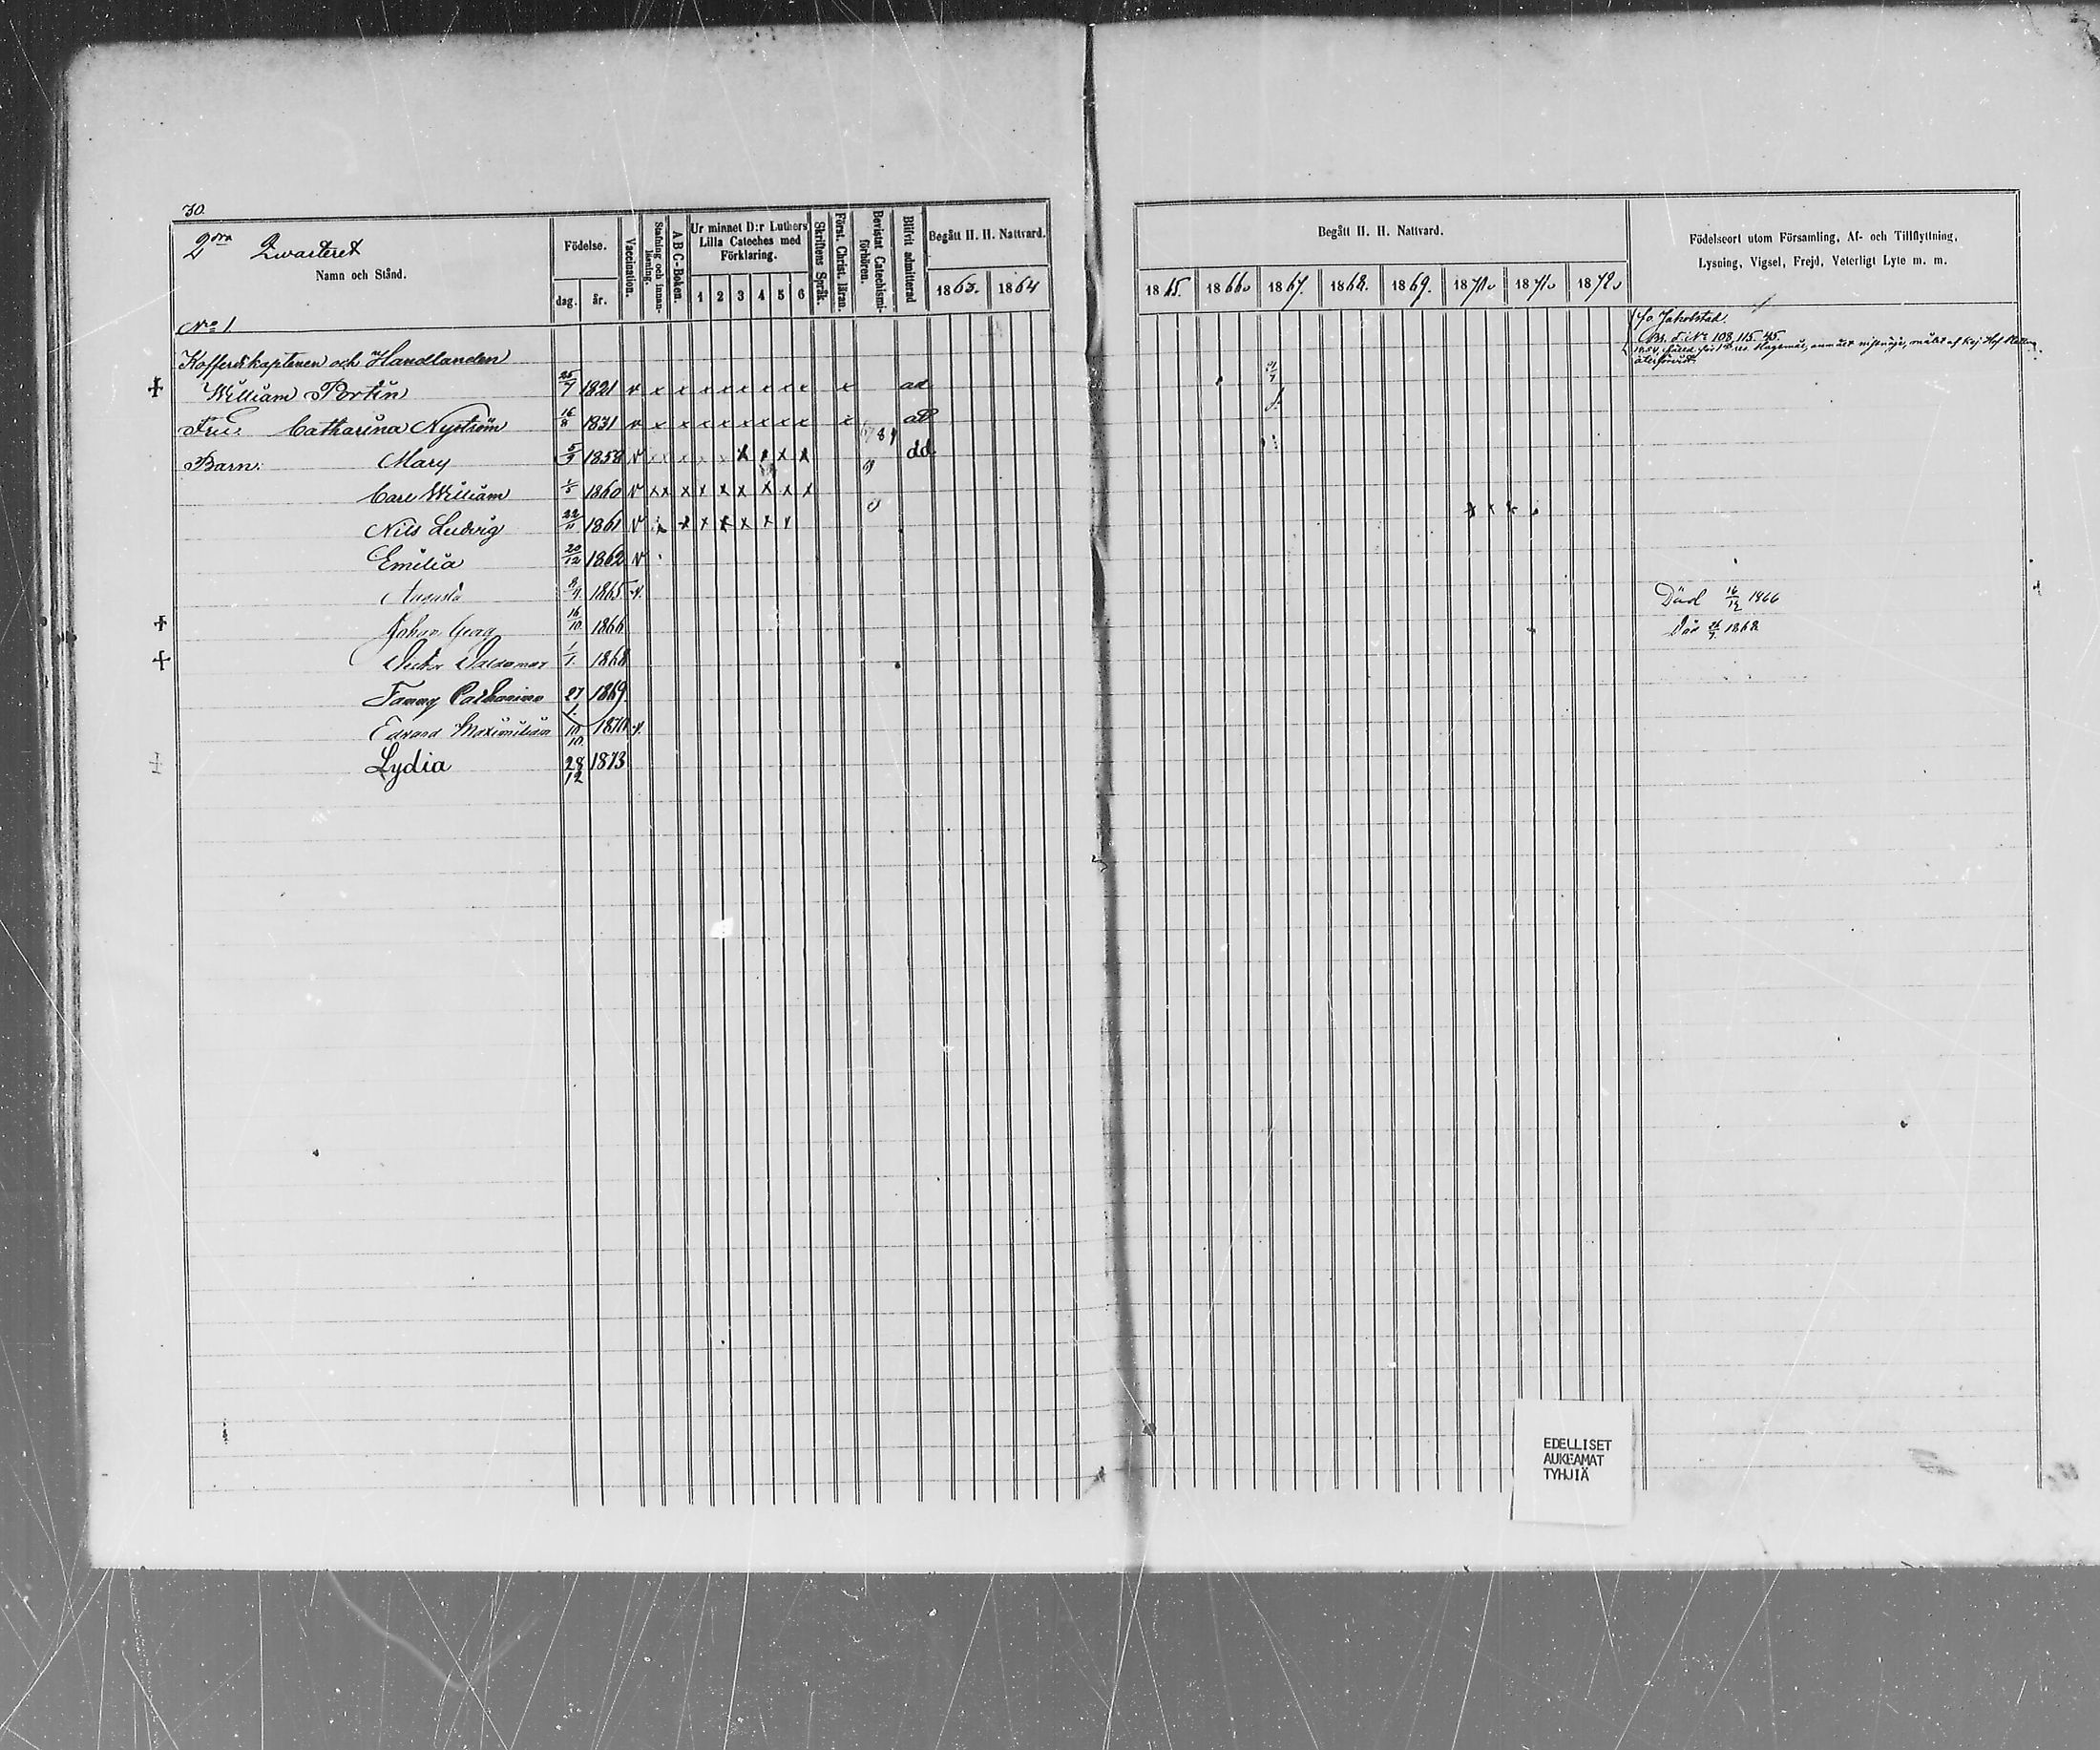 30.
2dra Qvarteret
Namn och Stånd.
Födelse.
dag. år.
Vaccination.
Stafning och innanläsning.
A B C-Boken.
Ur minnet D:r Luthers
Lilla Cateches med
Förklaring.
1 2 3 4 5 6
Skriftens Språk.
Först. Christ. läran.
Bevistat Catechismi-förhören.
Blifvit admitterad
Begått H. H. Nattvard.
1863. 1864
Begått H. H. Nattvard.
1865. 1866 1867. 1868. 1869. 1870 1871 1872
Födelseort utom Församling, Af- och Tillflyttning,
Lysning, Vigsel, Frejd, Veterligt Lyte m. m.
No 1
Jakobstad.
No 108, 115. 45.
1854
Kofferdikaptenen och Handlanden
William Portin 25/7 1821 v x x x x x x x x x ad
Fru: Catharina Nyström 16/8 1831 v x x x x x x x x x ad
Barn: Mary 5/9 1858 v x x x x dd
Carl William 1/5 1860 v x x x x x x x x x
Nils Ludvig 22/11 1861 v x x x x x x x
Emilia 20/12 1862 v
Augusta 1865 v.
Johan Georg 16/10 1866 Död 16/12 1866
Victor Valdemar 1/7. 1868 Död 26/7. 1868
Fanny Catharina 27 1869
Edvard Maximilian 10/10. 1870 v.
Lydia 28/12 1873
EDELLISET
AUKEAMAT
TYHJIÄ